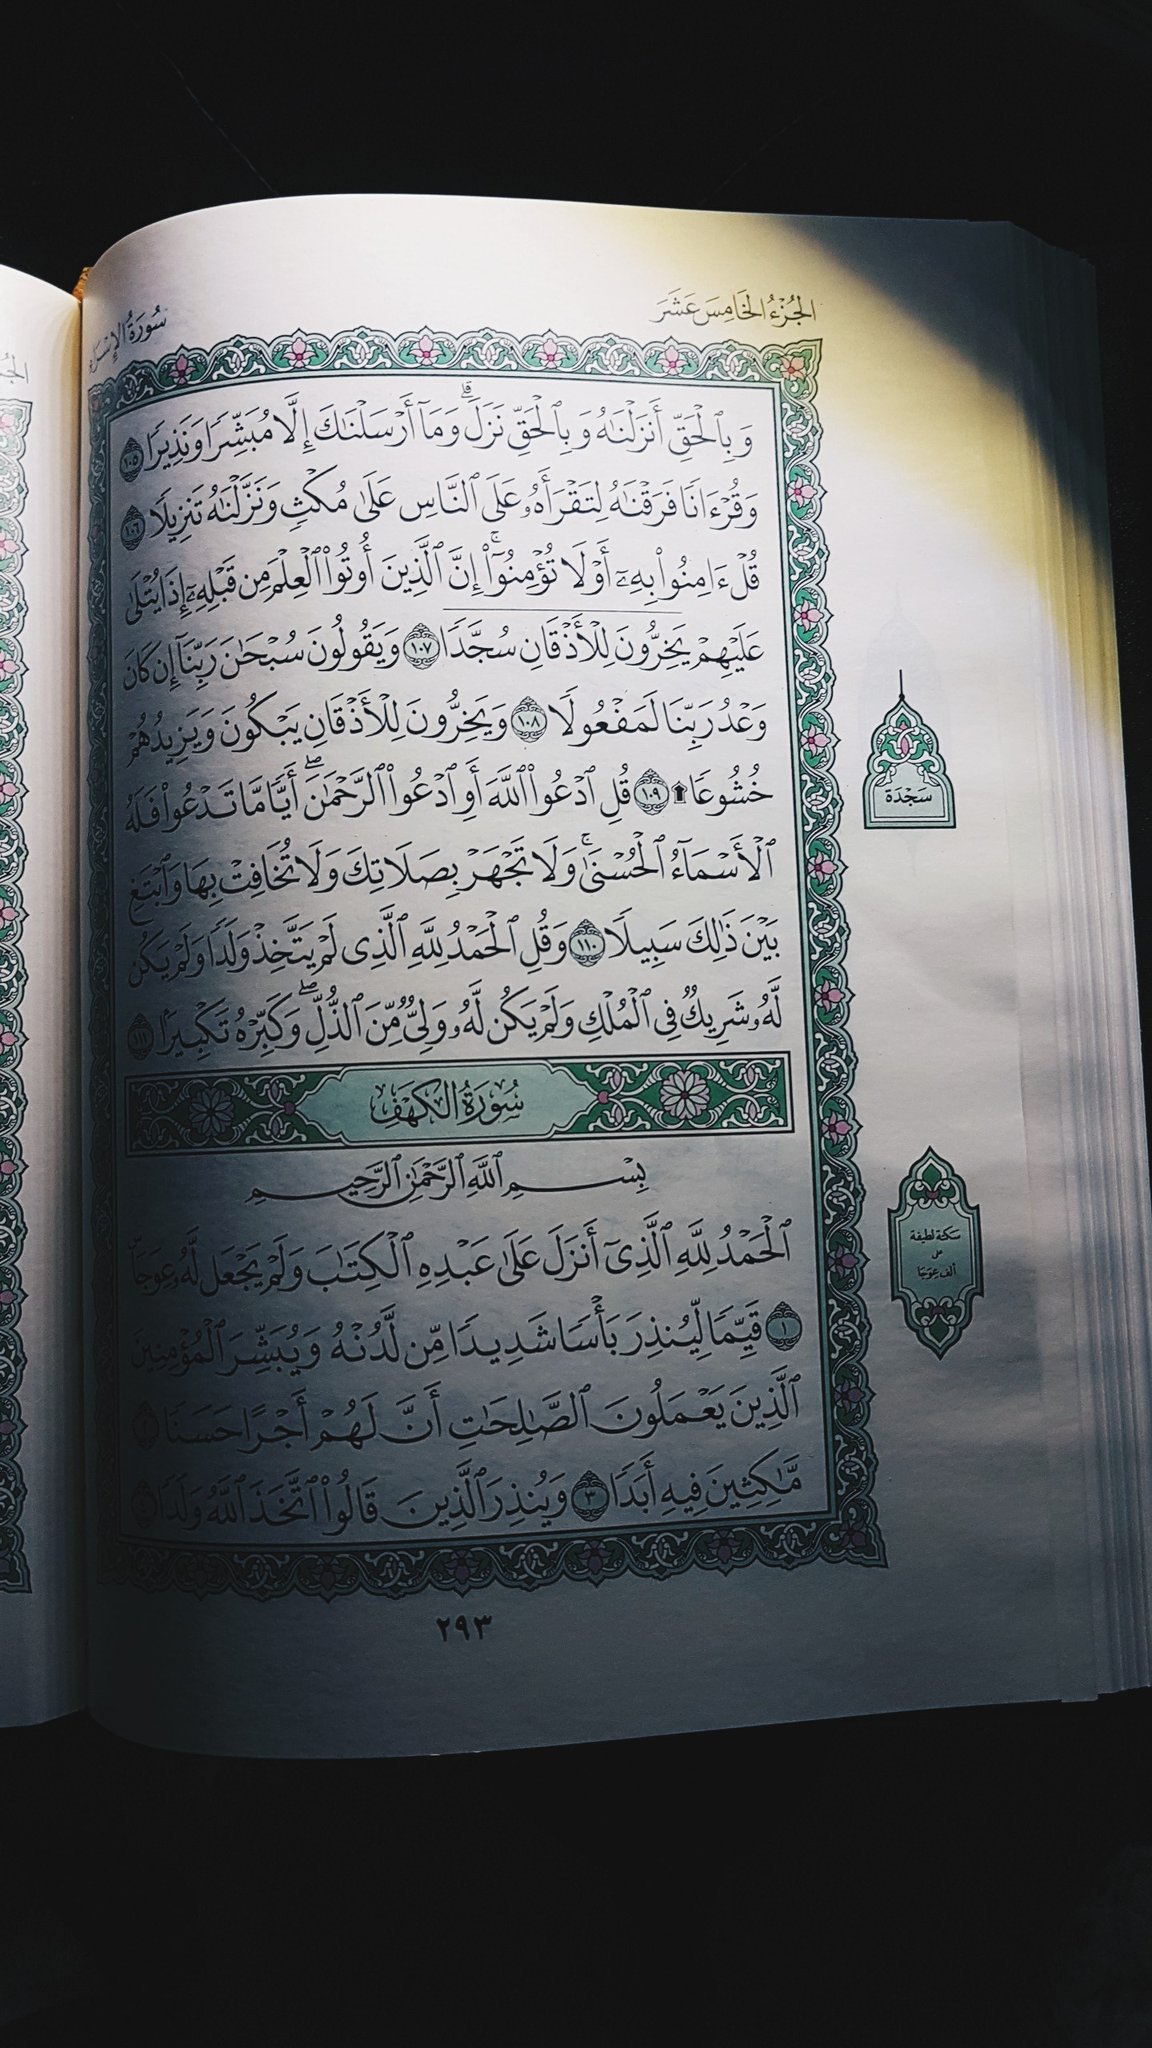 الجُزْءُ الخَامِسَ عَشَرَ
سُورَةُ الإِسْرَاءِ
وَبِٱلْحَقِّ أَنزَلْنَٰهُ وَبِٱلْحَقِّ نَزَلَۗ وَمَآ أَرْسَلْنَٰكَ إِلَّا مُبَشِّرًا وَنَذِيرًا ١٠٥
وَقُرْءَانًا فَرَقْنَٰهُ لِتَقْرَأَهُۥ عَلَى ٱلنَّاسِ عَلَىٰ مُكْثٍ وَنَزَّلْنَٰهُ تَنزِيلًا ١٠٦
قُلْ ءَامِنُوا۟ بِهِۦٓ أَوْ لَا تُؤْمِنُوٓا۟ۚ إِنَّ ٱلَّذِينَ أُوتُوا۟ ٱلْعِلْمَ مِن قَبْلِهِۦٓ إِذَا يُتْلَىٰ
عَلَيْهِمْ يَخِرُّونَ لِلْأَذْقَانِ سُجَّدًا ١٠٧ وَيَقُولُونَ سُبْحَٰنَ رَبِّنَآ إِن كَانَ
وَعْدُ رَبِّنَا لَمَفْعُولًا ١٠٨ وَيَخِرُّونَ لِلْأَذْقَانِ يَبْكُونَ وَيَزِيدُهُمْ
خُشُوعًا ۩ ١٠٩ قُلِ ٱدْعُوا۟ ٱللَّهَ أَوِ ٱدْعُوا۟ ٱلرَّحْمَٰنَۖ أَيًّا مَّا تَدْعُوا۟ فَلَهُ
ٱلْأَسْمَآءُ ٱلْحُسْنَىٰۚ وَلَا تَجْهَرْ بِصَلَاتِكَ وَلَا تُخَافِتْ بِهَا وَٱبْتَغِ
بَيْنَ ذَٰلِكَ سَبِيلًا ١١٠ وَقُلِ ٱلْحَمْدُ لِلَّهِ ٱلَّذِى لَمْ يَتَّخِذْ وَلَدًا وَلَمْ يَكُن
لَّهُۥ شَرِيكٌ فِى ٱلْمُلْكِ وَلَمْ يَكُن لَّهُۥ وَلِىٌّ مِّنَ ٱلذُّلِّۖ وَكَبِّرْهُ تَكْبِيرًا ١١١
سُورَةُ الكَهْفِ
بِسْمِ ٱللَّهِ ٱلرَّحْمَٰنِ ٱلرَّحِيمِ
ٱلْحَمْدُ لِلَّهِ ٱلَّذِىٓ أَنزَلَ عَلَىٰ عَبْدِهِ ٱلْكِتَٰبَ وَلَمْ يَجْعَل لَّهُۥ عِوَجَاۜ
١ قَيِّمًا لِّيُنذِرَ بَأْسًا شَدِيدًا مِّن لَّدُنْهُ وَيُبَشِّرَ ٱلْمُؤْمِنِينَ
ٱلَّذِينَ يَعْمَلُونَ ٱلصَّٰلِحَٰتِ أَنَّ لَهُمْ أَجْرًا حَسَنًا ٢
مَّٰكِثِينَ فِيهِ أَبَدًا ٣ وَيُنذِرَ ٱلَّذِينَ قَالُوا۟ ٱتَّخَذَ ٱللَّهُ وَلَدًا ٤
سَجْدَة
سكتة لطيفة
على
ألف عِوَجَا
٢٩٣